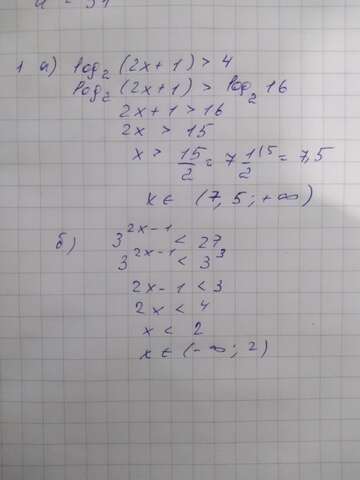 a = 31
1 а) log₂ (2x + 1) > 4
log₂ (2x + 1) > log₂ 16
2x + 1 > 16
2x > 15
x > 15/2 = 7 1/2 = 7,5
x ∈ (7,5; +∞)
б) 3^(2x-1) < 27
3^(2x-1) < 3³
2x - 1 < 3
2x < 4
x < 2
x ∈ (-∞; 2)